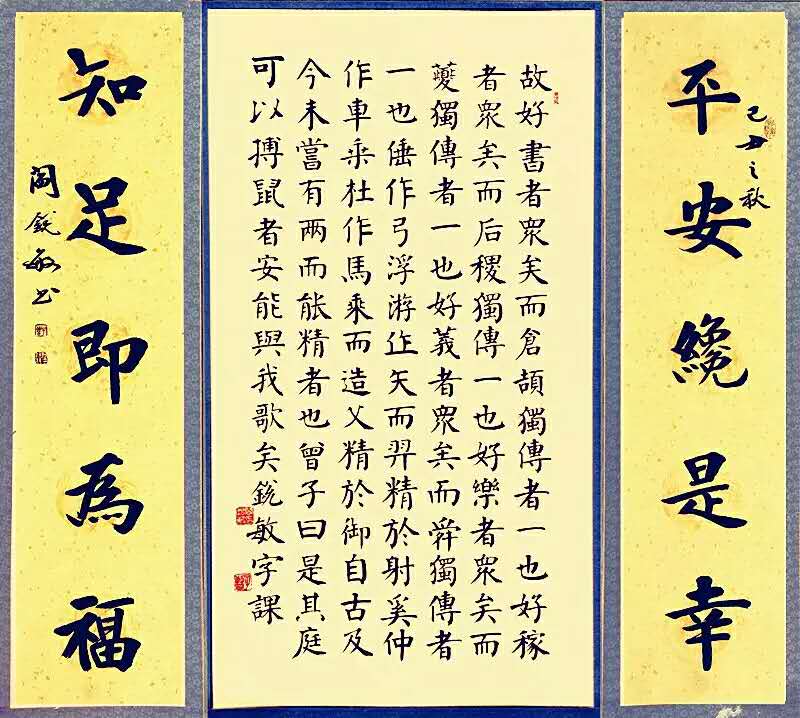 己丑之秋
平安纔是幸
故好書者眾矣而倉頡獨傳者一也好稼
者眾矣而后稷獨傳一也好樂者眾矣而
夔獨傳者一也好義者眾矣而舜獨傳者
一也倕作弓浮游作矢而羿精於射奚仲
作車乘杜作馬乘而造父精於御自古及
今未嘗有两而能精者也曾子曰是其庭
可以搏鼠者安能與我歌矣銳敏字課
知足即為福
銳敏书